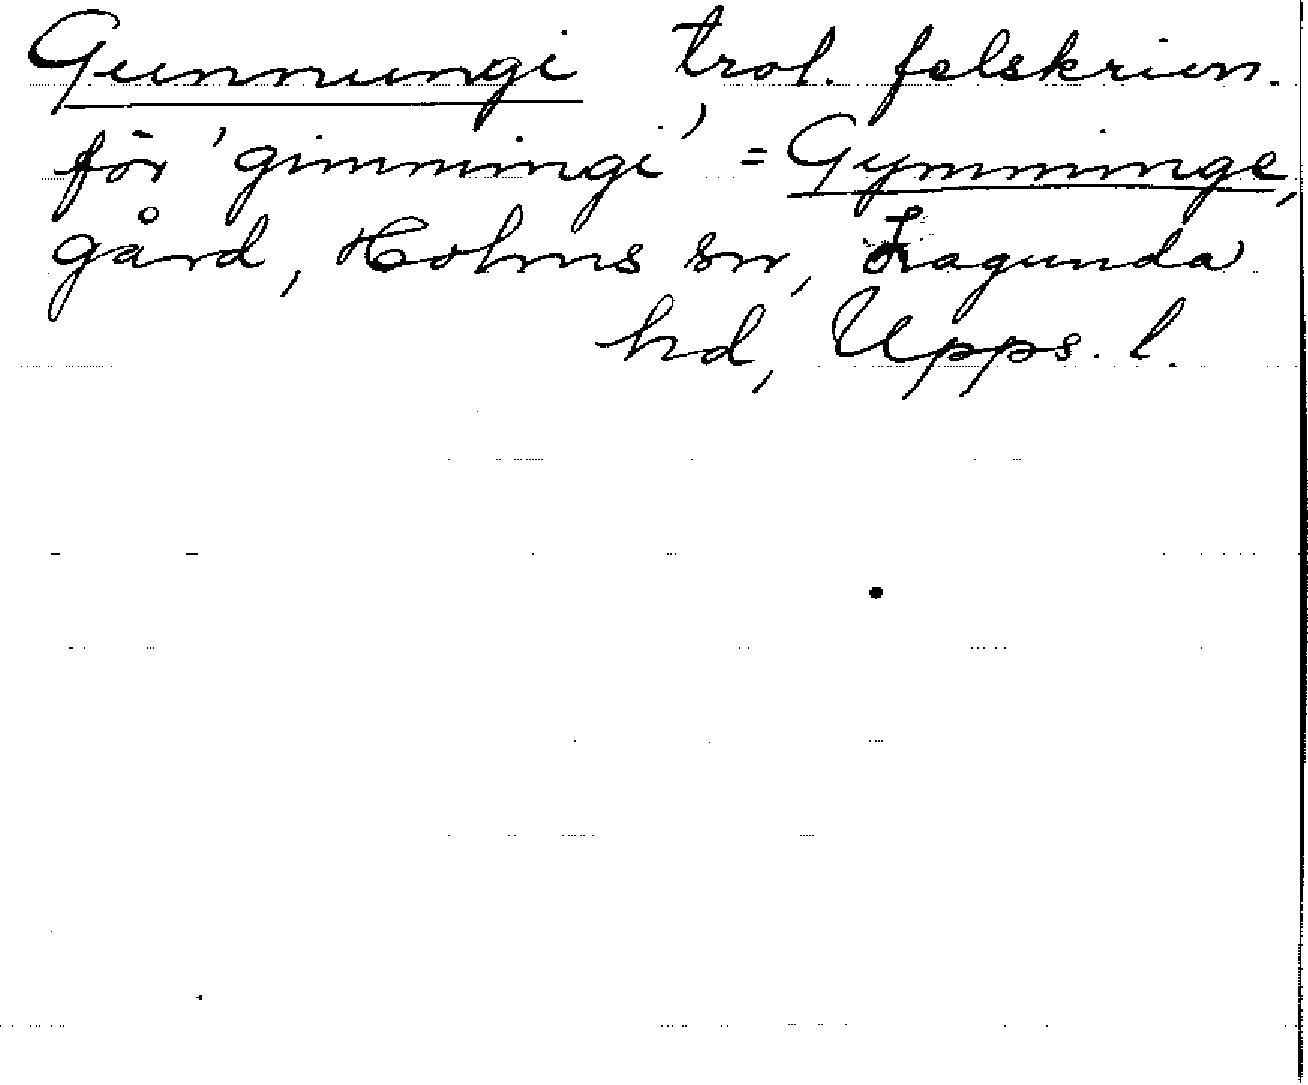 Gunnungi trol. felskrivn.
för 'gimmingi' = Gymminge,
gård, Holms sn, Lagunda
hd, Upps. l.